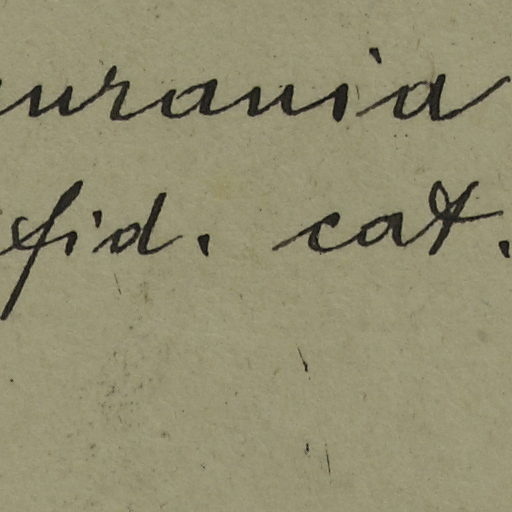 urania
fid. cat.